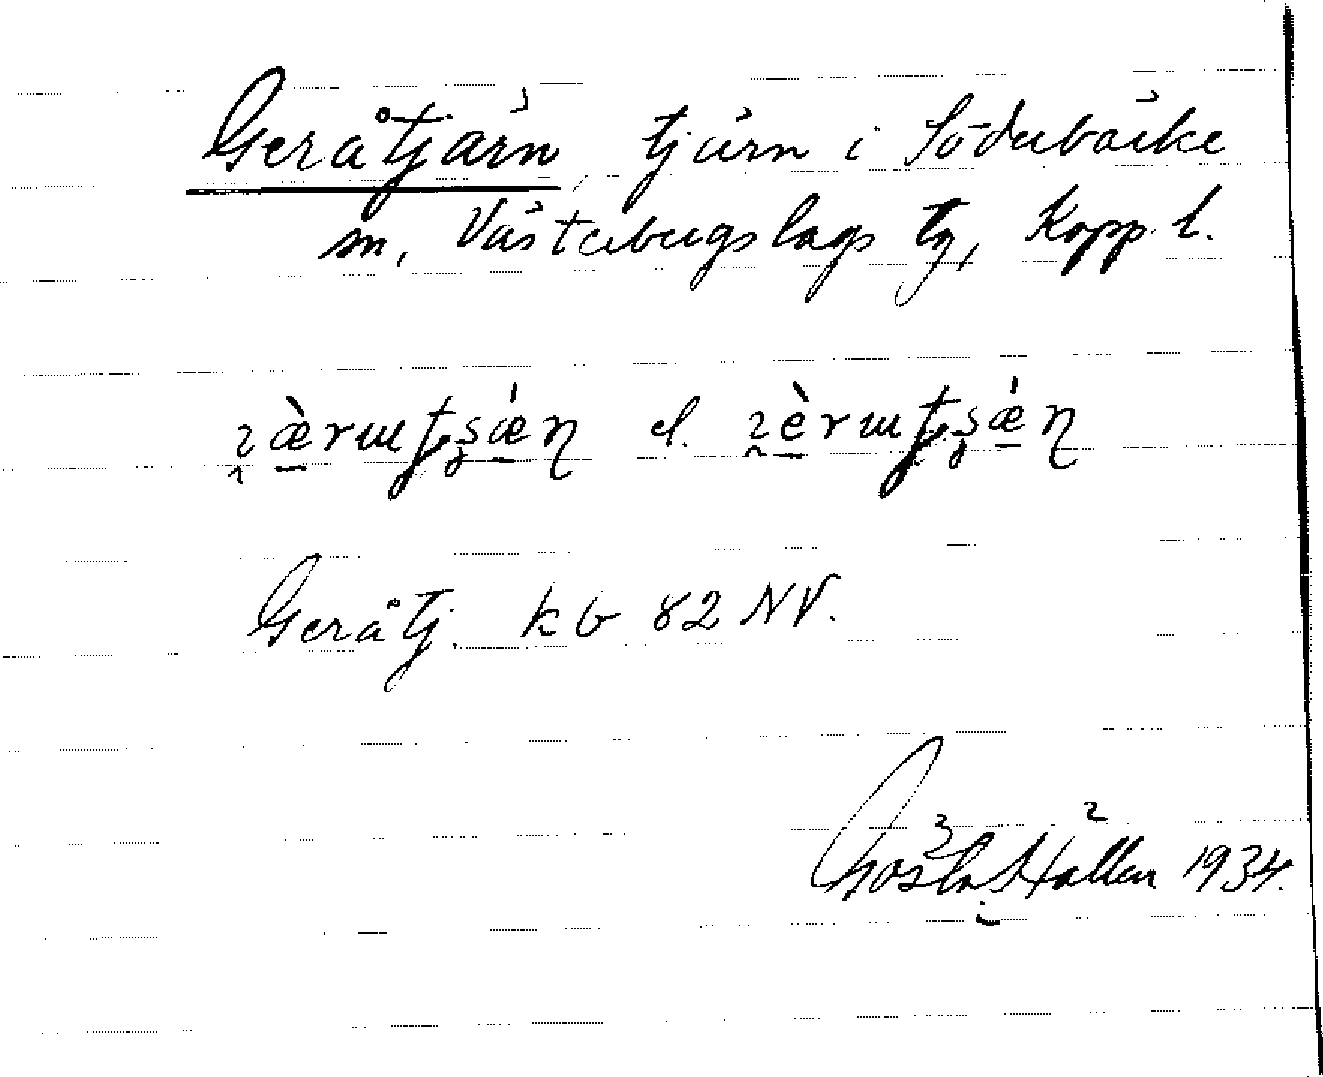 Geråtjärn tjärn i Söderbärke
sn, Västerbergslags tg, Kopp. l.
el.
Geråtj. kb 82 NV.
Gösta Hallen 1934.